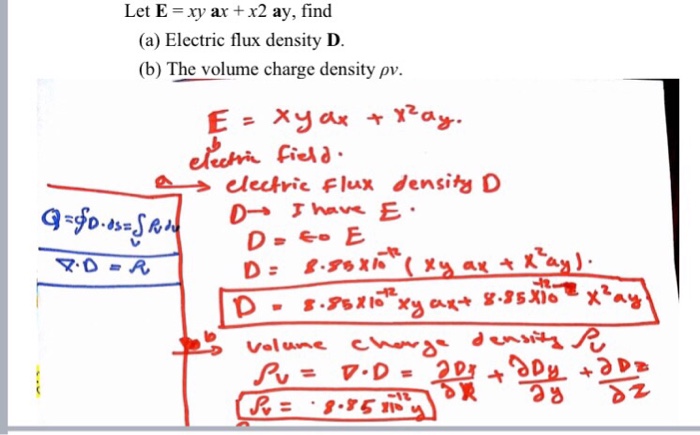 Let E = xy ax + x2 ay, find
(a) Electric flux density D.
(b) The volume charge density ρv.
E = xy ax + x² ay.
electric field.
a → electric flux density D
D → I have E.
D = ϵ₀ E
D = 8.85 x 10⁻¹² ( xy ax + x² ay).
D = 8.85 x 10⁻¹² xy ax + 8.85 x 10⁻¹² x² ay
b volume charge density ρv
ρv = ∇·D = ∂Dx/∂x + ∂Dy/∂y + ∂Dz/∂z
ρv = 8.85 x 10⁻¹² y
Q = ∮D·ds = ∫v ρv dv
∇·D = ρv